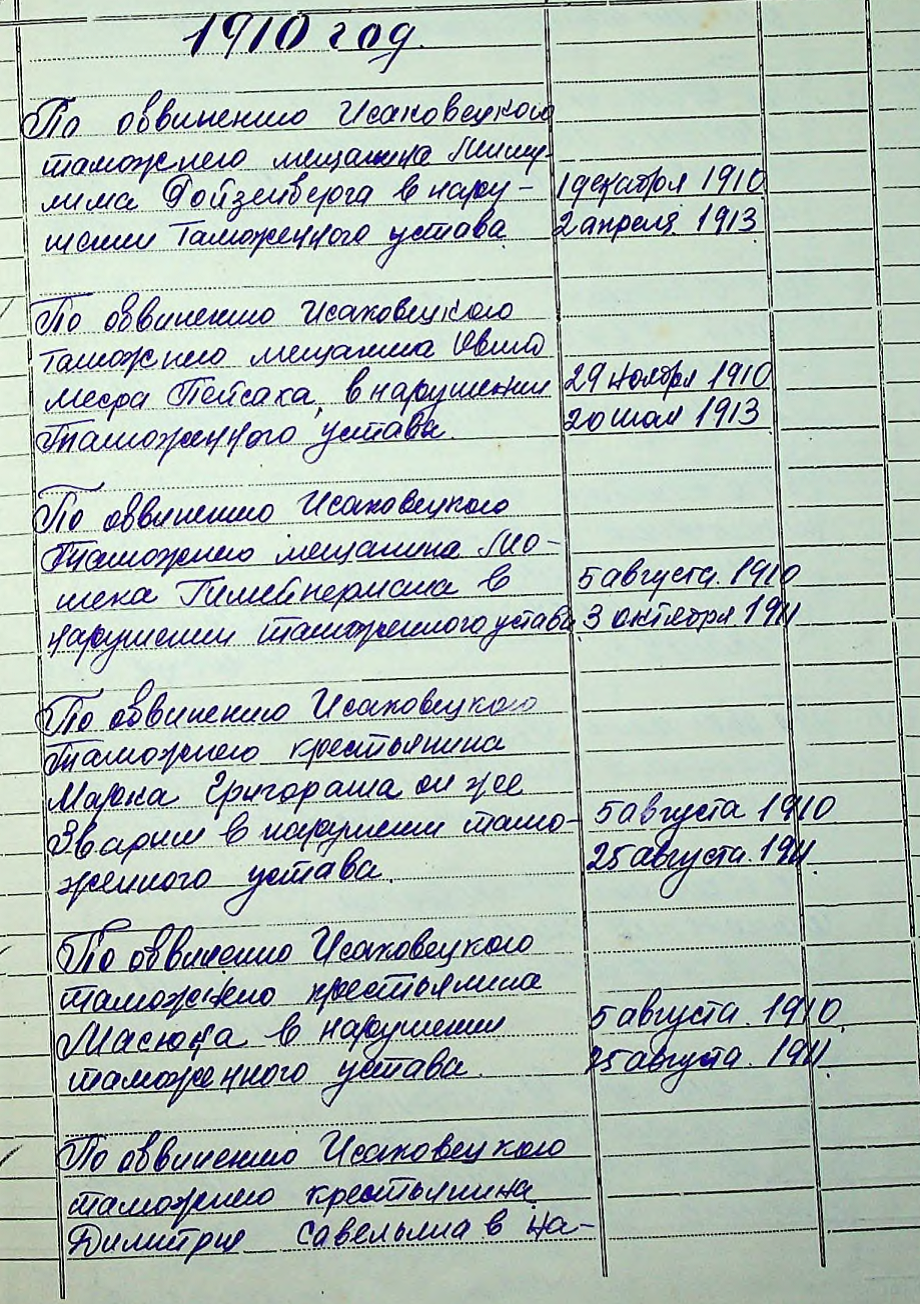 1910 год.
По обвинению Исаковецкого
таможнею мещанина
лима Ройзенберга в нару-
шении Таможенного устава
1 декабря 1910
2 апреля 1913
По обвинению Исаковецкого
таможнею мещанина
Меера Пейсаха, в нарушении
Таможенного устава.
29 ноября 1910
20 мая 1913
По обвинению Исаковецкого
таможнею мещанина Мо-
шека в
нарушении таможенного устава
5 августа. 1910
3 октября 1911
По обвинению Исаковецкого
таможнею крестьянина
Марка Григораша он же
Зварыш в нарушении тамо-
женного устава.
5 августа 1910
25 августа. 1911
По обвинению Исаковецкого
таможнею крестьянина
Масюка в нарушении
таможенного устава.
5 августа. 1910
25 августа. 1911.
По обвинению Исаковецкого
таможнею крестьянина
Димитрия Савельина в на-